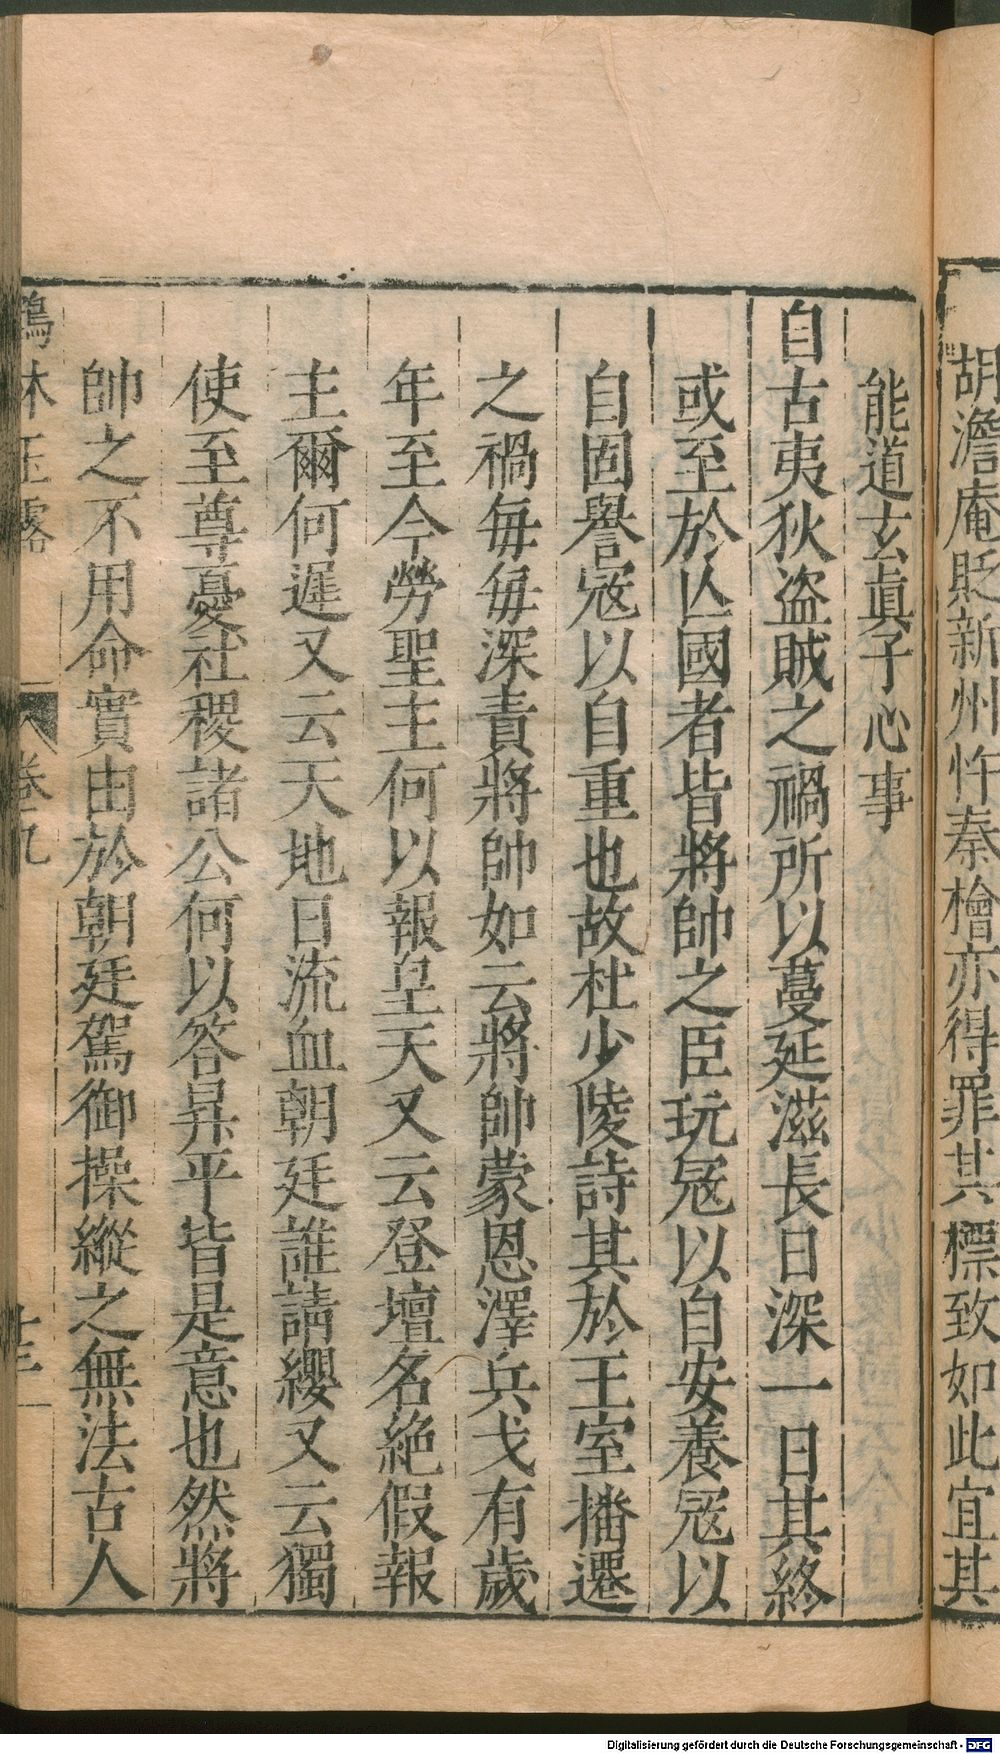 胡澹庵貶新州忤秦檜亦得罪其標致如此宜其
能道玄眞子心事
自古夷狄盗賊之禍所以蔓延滋長日深一日其終
或至於亾國者皆將帥之臣玩宼以自安養宼以
自固譽宼以自重也故杜少陵詩其於王室播遷
之禍毎毎深責將帥如云將帥蒙恩澤兵戈有歲
年至今勞聖主何以報皇天又云登壇名絶假報
主爾何遲又云天地日流血朝廷誰請纓又云獨
使至尊憂社稷諸公何以答昇平皆是意也然將
帥之不用命實由於朝廷駕御操縱之無法古人
鶴林玉露 卷九 十三
Digitalisierung gefördert durch die Deutsche Forschungsgemeinschaft - DFG